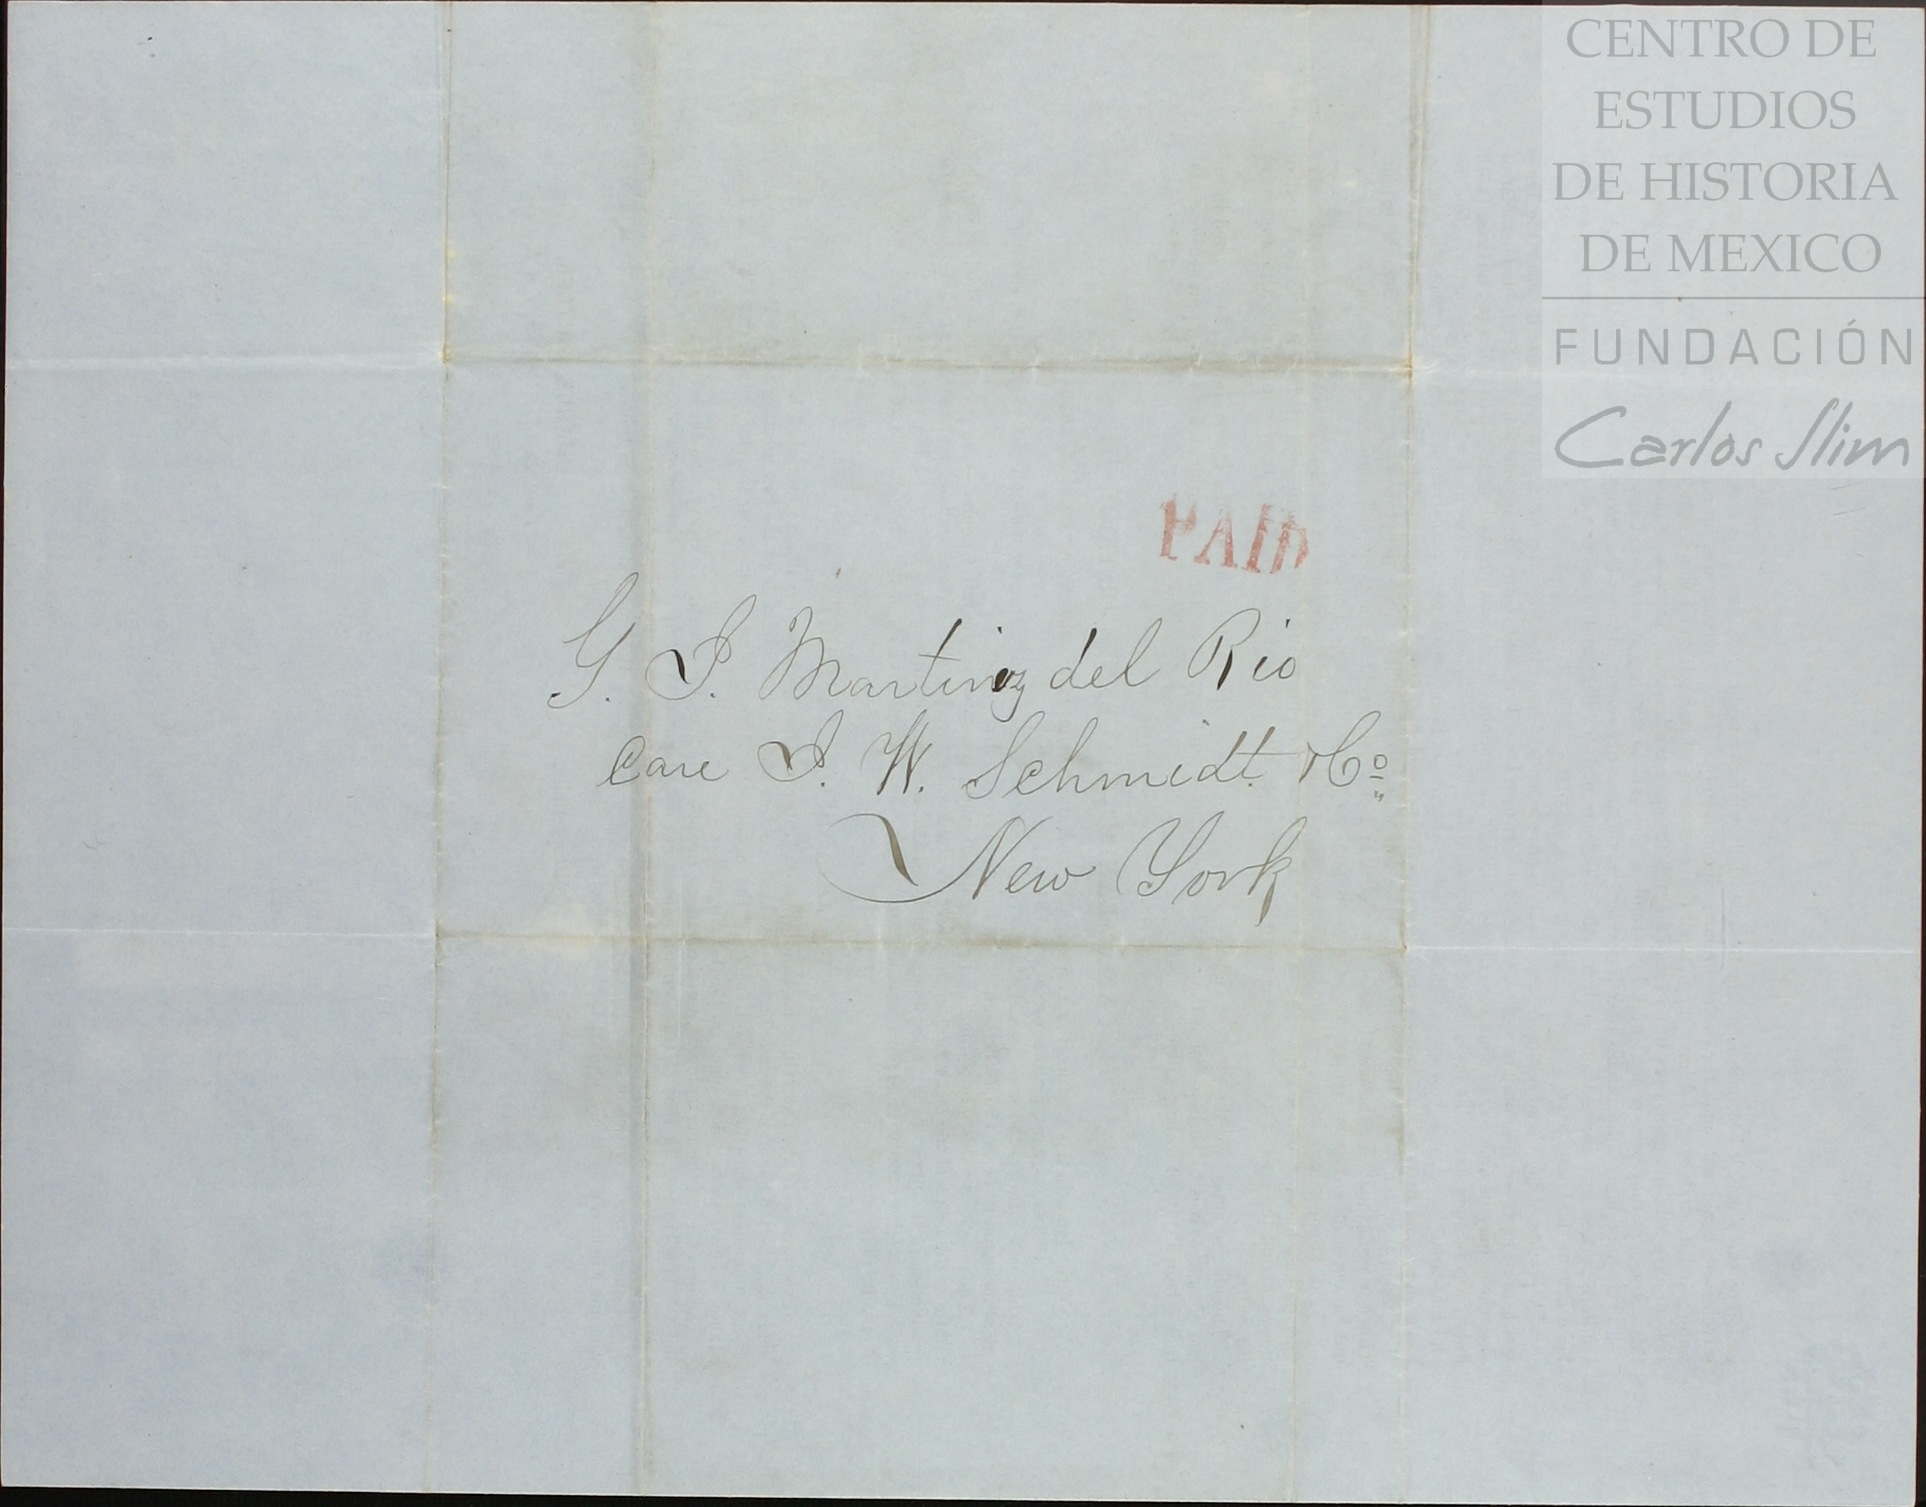 CENTRO DE
ESTUDIOS
DE HISTORIA
DE MEXICO
FUNDACIÓN
Carlos Slim
PAID
G. P. Martinez del Rio
Care P. W. Schmidt & Co
New York